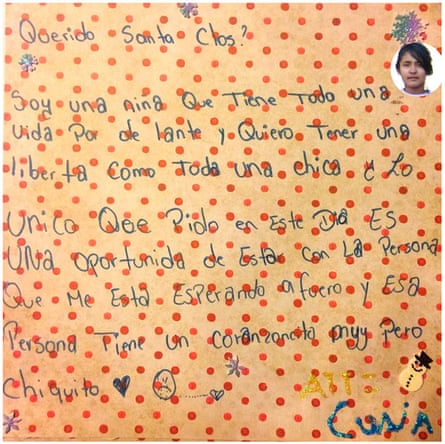 Querido Santa Clos?
Soy una niña Que Tiene Todo una
vida Por de lante y Quiero Tener una
liberta Como Toda una chica y Lo
unico Que Pido en Este Dia ES
UNA oportunida de Estar con La Persona
Que Me Esta Esperando afuero y ESA
Persona Tiene un coranzoncito muy Pero
Chiquito
ATT:
CUNA